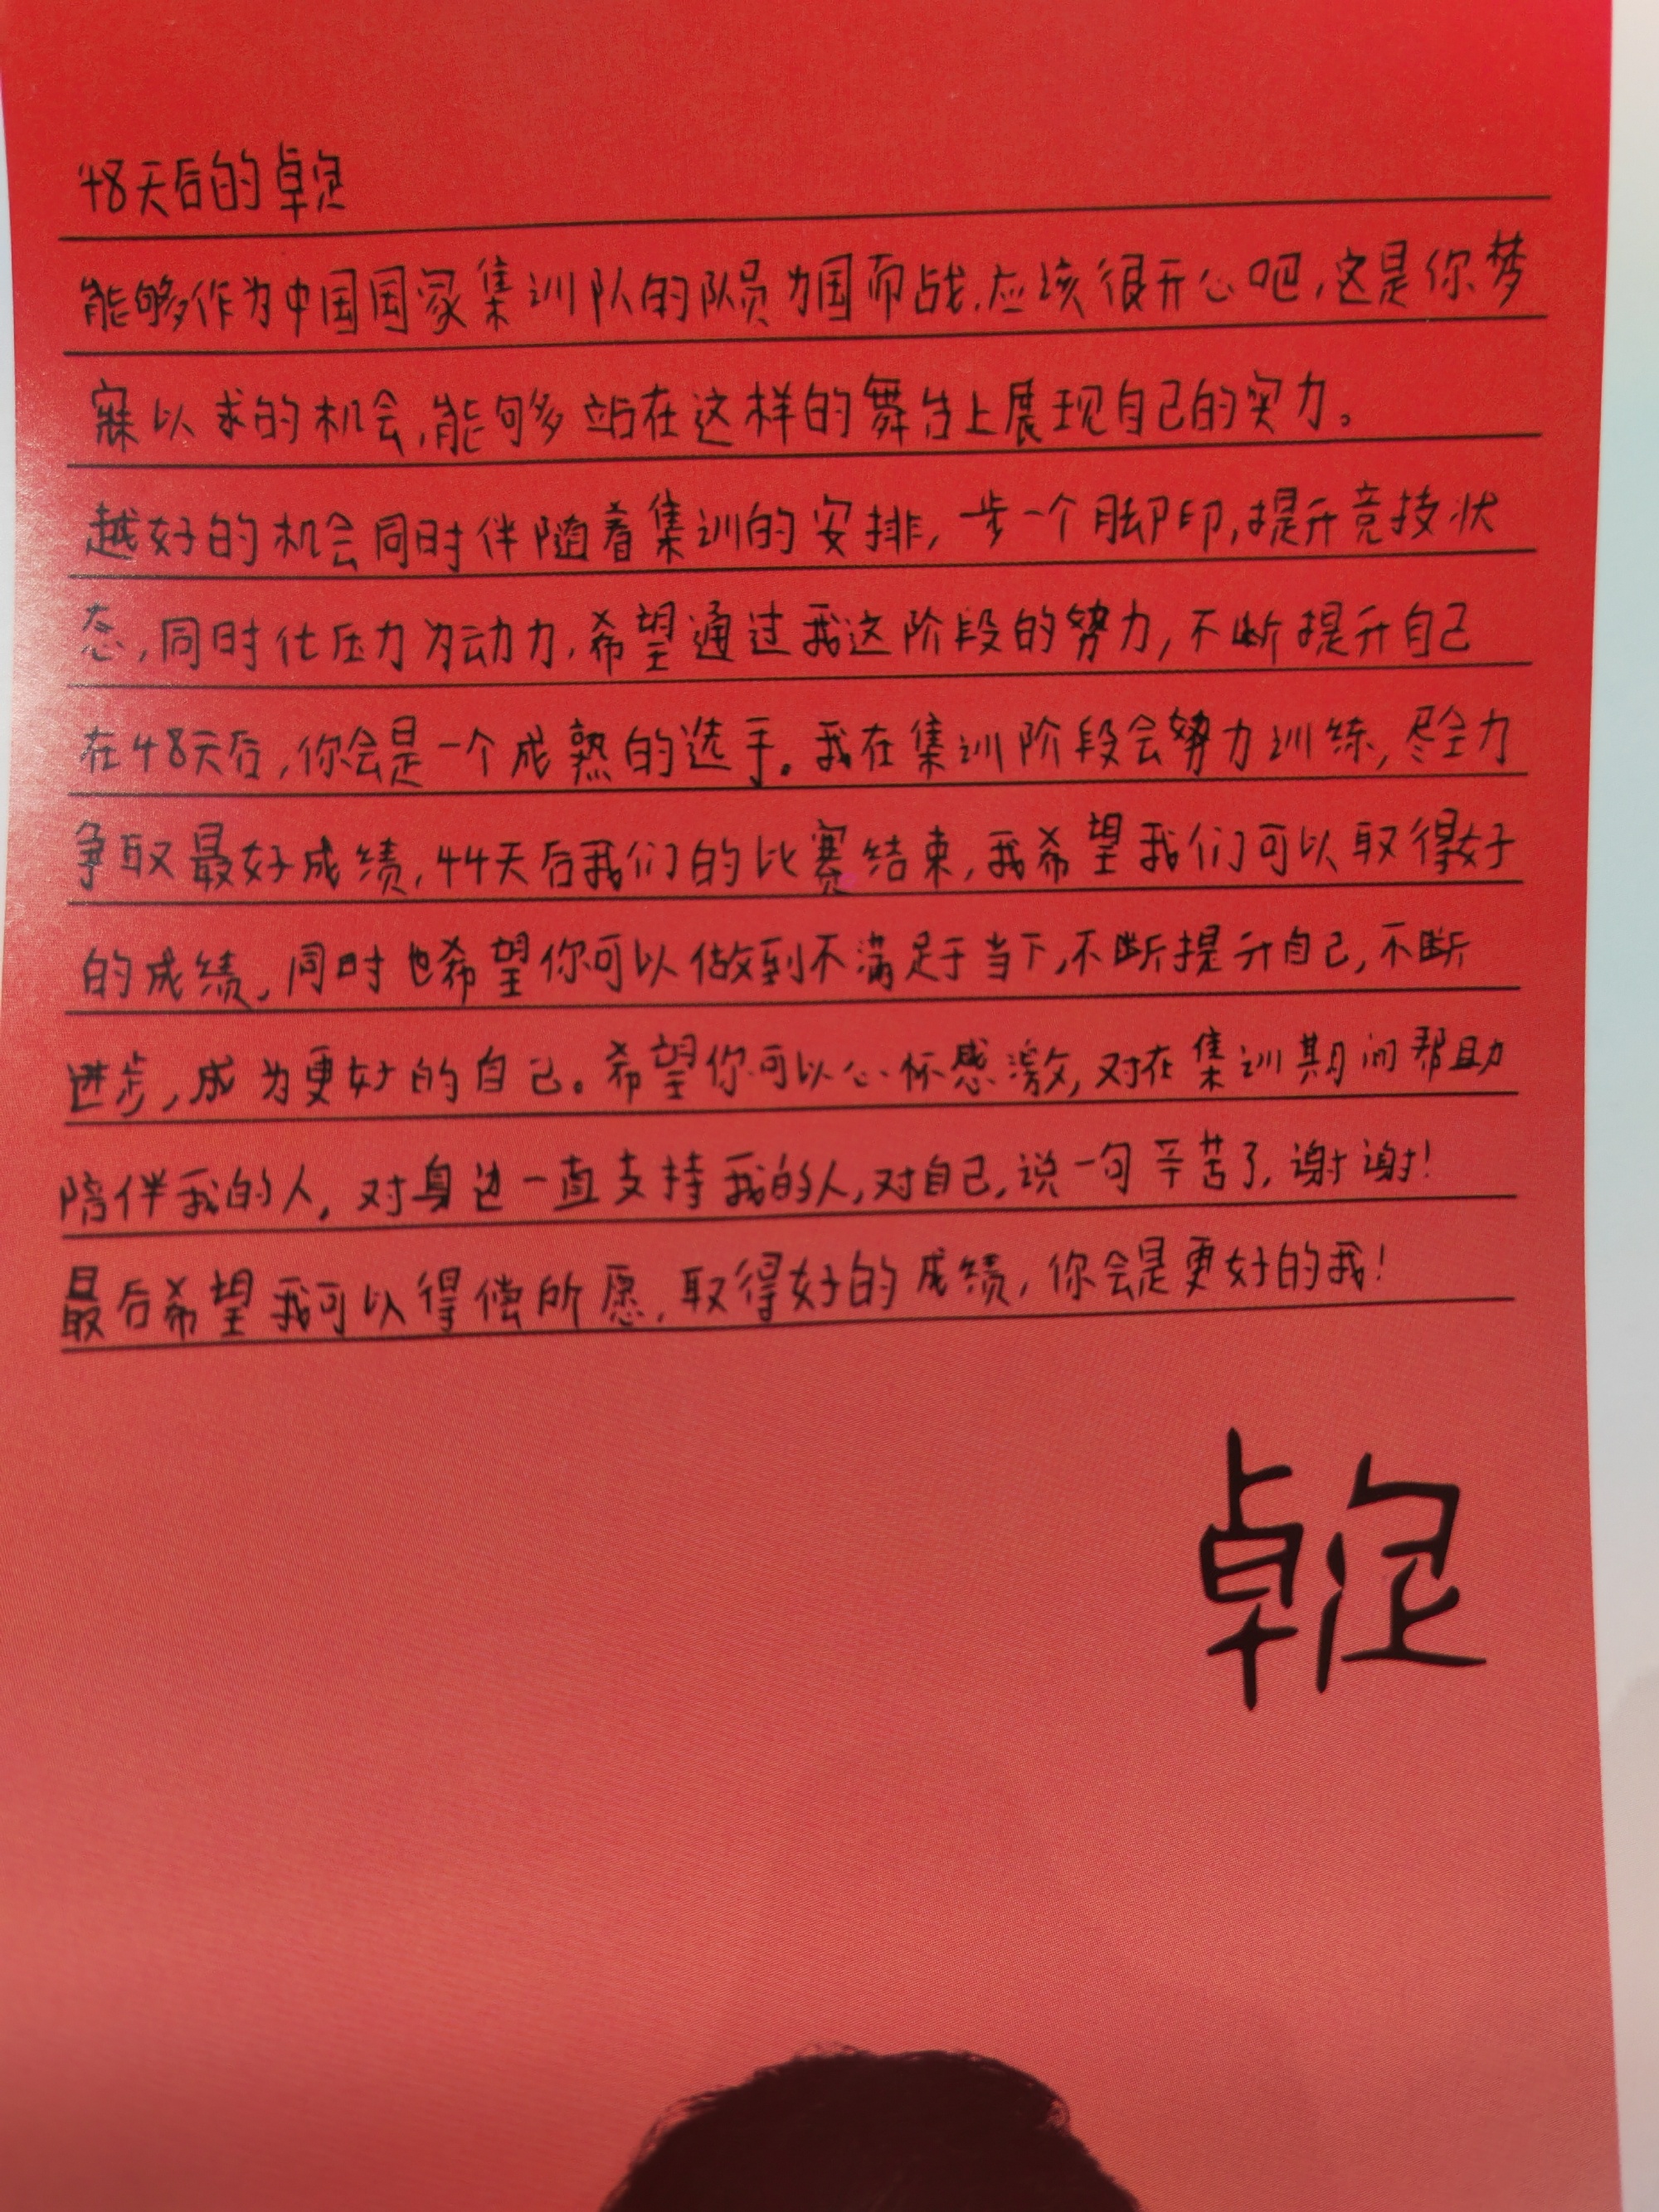 48天后的卓定
能够作为中国国家集训队的队员为国而战,应该很开心吧,这是你梦
寐以求的机会,能够站在这样的舞台上展现自己的实力。
越好的机会同时伴随着集训的安排,一步一个脚印,提升竞技状
态,同时化压力为动力,希望通过我这阶段的努力,不断提升自己
在48天后,你会是一个成熟的选手。我在集训阶段会努力训练,尽全力
争取最好成绩,44天后我们的比赛结束,我希望我们可以取得好
的成绩,同时也希望你可以做到不满足于当下,不断提升自己,不断
进步,成为更好的自己。希望你可以心怀感激,对在集训期间帮助
陪伴我的人,对身边一直支持我的人,对自己,说一句辛苦了,谢谢!
最后希望我可以得偿所愿,取得好的成绩,你会是更好的我!
卓定